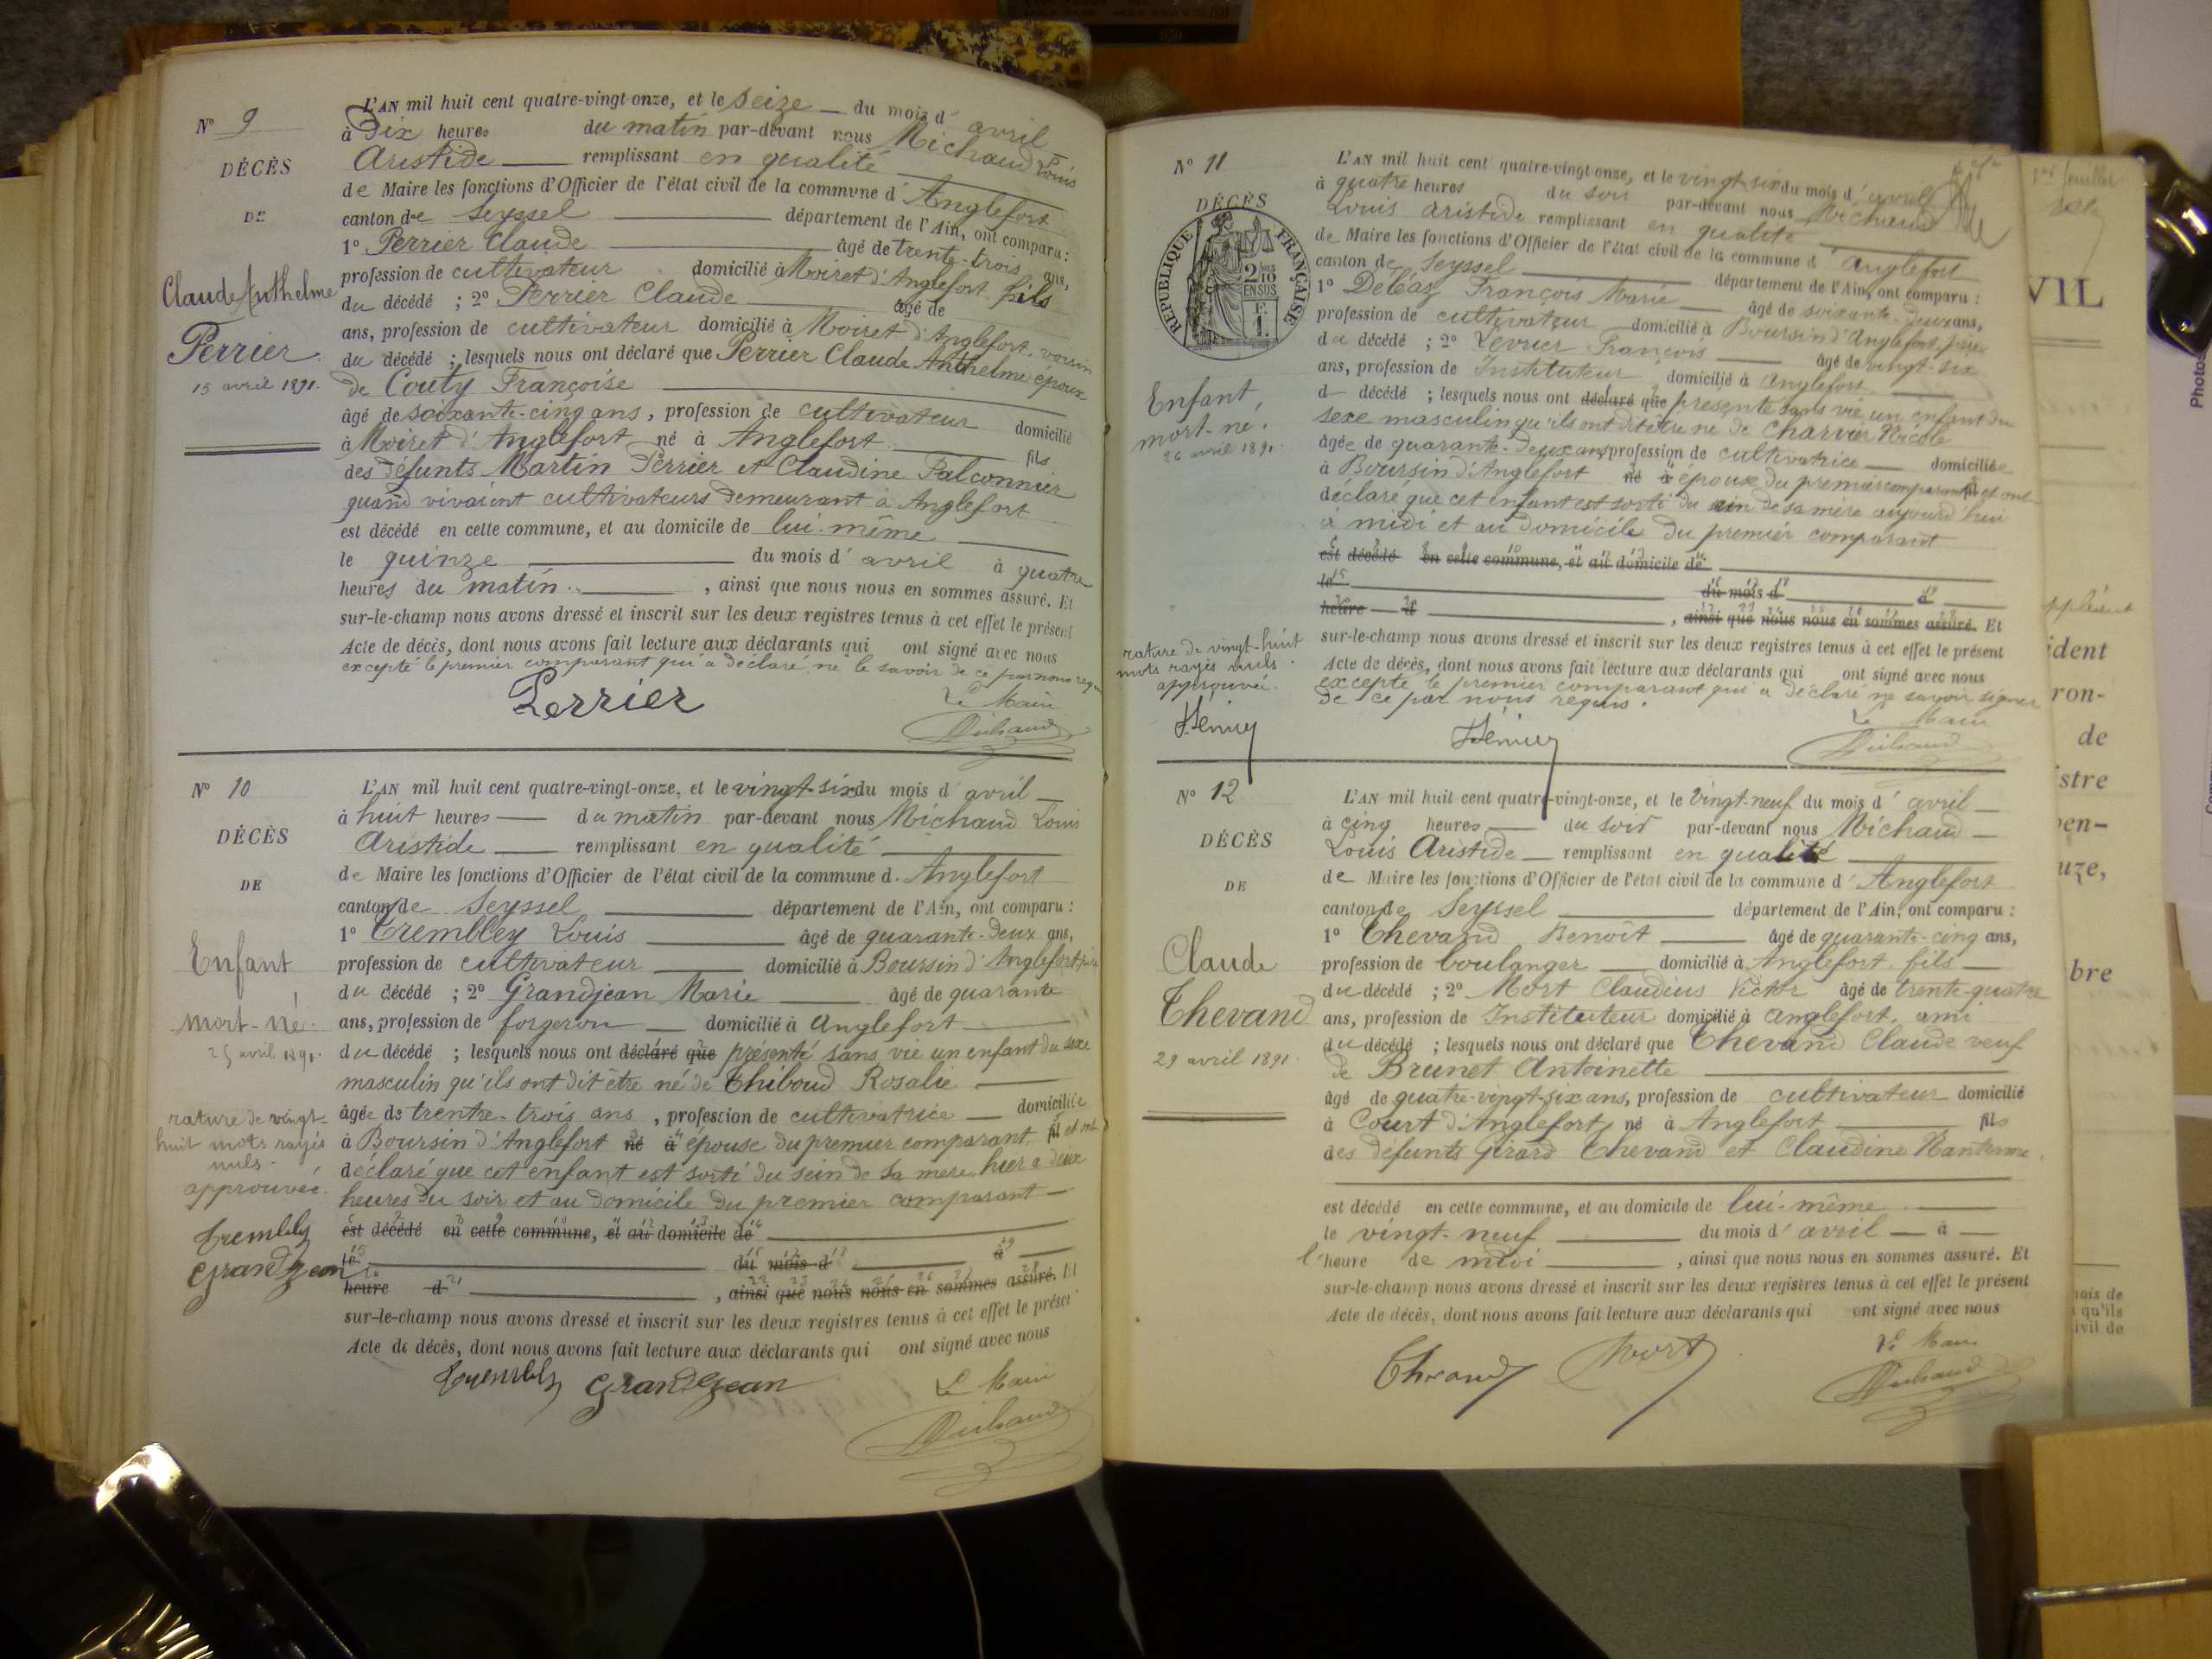 N° 9
DÉCÈS
DE
Claude Anthelme
Perrier
15 avril 1891.
L'AN mil huit cent quatre-vingt-onze, et le seize du mois d' avril
à Dix heures du matin par-devant nous Michaud Louis
Aristide remplissant en qualité
de Maire les fonctions d'Officier de l'état civil de la commune d' Anglefort
canton de Seyssel département de l'Ain, ont comparu :
1° Perrier Claude âgé de trente-trois ans,
profession de cultivateur domicilié à Moiret d'Anglefort fils
du décédé ; 2° Perrier Claude âgé de
ans, profession de cultivateur domicilié à Moiret d'Anglefort, voisin
du décédé ; lesquels nous ont déclaré que Perrier Claude Anthelme époux
de Couty Françoise
âgé de soixante-cinq ans, profession de cultivateur domicilié
à Moiret d'Anglefort né à Anglefort fils
des défunts Martin Perrier et Claudine Falconnier
quand vivaient cultivateurs demeurant à Anglefort
est décédé en cette commune, et au domicile de lui-même
le quinze du mois d' avril à quatre
heures du matin , ainsi que nous nous en sommes assuré. Et
sur-le-champ nous avons dressé et inscrit sur les deux registres tenus à cet effet le présent
Acte de décès, dont nous avons fait lecture aux déclarants qui ont signé avec nous
excepté le premier comparant qui a déclaré ne le savoir de ce par nous requis
Perrier
Le Maire
Michaud
N° 10
DÉCÈS
DE
Enfant
mort-né.
25 avril 1891.
rature de vingt-
huit mots rayés
nuls.
approuvée.
Trembley
Grandjean
L'AN mil huit cent quatre-vingt-onze, et le vingt-six du mois d' avril
à huit heures du matin par-devant nous Michaud Louis
Aristide remplissant en qualité
de Maire les fonctions d'Officier de l'état civil de la commune d. Anglefort
canton de Seyssel département de l'Ain, ont comparu :
1° Trembley Louis âgé de quarante-deux ans,
profession de cultivateur domicilié à Boursin d'Anglefort père
du décédé ; 2° Grandjean Marie âgé de quarante
ans, profession de forgeron domicilié à Anglefort
du décédé ; lesquels nous ont déclaré que présenté sans vie un enfant du sexe
masculin qu'ils ont dit être né de Thiboud Rosalie
âgée de trente-trois ans , profession de cultivatrice domiciliée
à Boursin d'Anglefort né à épouse du premier comparant, fil et ont
déclaré que cet enfant est sorti du sein de sa mère hier à deux
heures du soir et au domicile du premier comparant
est décédé en cette commune, et au domicile de
le du mois d à
heure d , ainsi que nous nous en sommes assuré. Et
sur-le-champ nous avons dressé et inscrit sur les deux registres tenus à cet effet le présent
Acte de décès, dont nous avons fait lecture aux déclarants qui ont signé avec nous
Trembley Grandjean
Le Maire
Michaud
N° 11
DÉCÈS
RÉPUBLIQUE FRANÇAISE
2/10 EN SUS
F. 1.
Enfant,
mort-né.
26 avril 1891.
rature de vingt-huit
mots rayés nuls.
approuvée.
L'AN mil huit cent quatre-vingt-onze, et le vingt-six du mois d' avril
à quatre heures du soir par-devant nous Michaud
Louis Aristide remplissant en qualité
de Maire les fonctions d'Officier de l'état civil de la commune d' Anglefort
canton de Seyssel département de l'Ain, ont comparu :
1° Déléaz François Marie âgé de soixante-deux ans,
profession de cultivateur domicilié à Boursin d'Anglefort, père
du décédé ; 2° François âgé de vingt-six
ans, profession de Instituteur domicilié à Anglefort
d décédé ; lesquels nous ont déclaré que présenté sans vie un enfant du
sexe masculin qu'ils ont dit être né de Charvier Nicole
âgée de quarante-deux ans profession de cultivatrice domiciliée
à Boursin d'Anglefort né à épouse du premier comparant fil et ont
déclaré que cet enfant est sorti du sein de sa mère aujourd'hui
à midi et au domicile du premier comparant
est décédé en cette commune, et au domicile de
le du mois d à
heure d , ainsi que nous nous en sommes assuré. Et
sur-le-champ nous avons dressé et inscrit sur les deux registres tenus à cet effet le présent
Acte de décès, dont nous avons fait lecture aux déclarants qui ont signé avec nous
excepté le premier comparant qui a déclaré ne savoir signer
de ce par nous requis.
Le Maire
Michaud
N° 12
DÉCÈS
DE
Claude
Thevand
29 avril 1891.
L'AN mil huit cent quatre-vingt-onze, et le vingt-neuf du mois d' avril
à cinq heures du soir par-devant nous Michaud
Louis Aristide remplissant en qualité
de Maire les fonctions d'Officier de l'état civil de la commune d' Anglefort
canton de Seyssel département de l'Ain, ont comparu :
1° Thevand Benoît âgé de quarante-cinq ans,
profession de boulanger domicilié à Anglefort, fils
du décédé ; 2° Mort Claudius Victor âgé de trente-quatre
ans, profession de Instituteur domicilié à Anglefort, ami
du décédé ; lesquels nous ont déclaré que Thevand Claude veuf
de Brunet Antoinette
âgé de quatre-vingt-six ans, profession de cultivateur domicilié
à Court d'Anglefort, né à Anglefort fils
des défunts Girard Thevand et Claudine
est décédé en cette commune, et au domicile de lui-même
le vingt-neuf du mois d' avril à
l'heure de midi , ainsi que nous nous en sommes assuré. Et
sur-le-champ nous avons dressé et inscrit sur les deux registres tenus à cet effet le présent
Acte de décès, dont nous avons fait lecture aux déclarants qui ont signé avec nous
Thevand Mort
Le Maire
Michaud
VIL
ident
ron-
de
istre
uze,
bre
mois de
qu'ils
ivil de
Photos